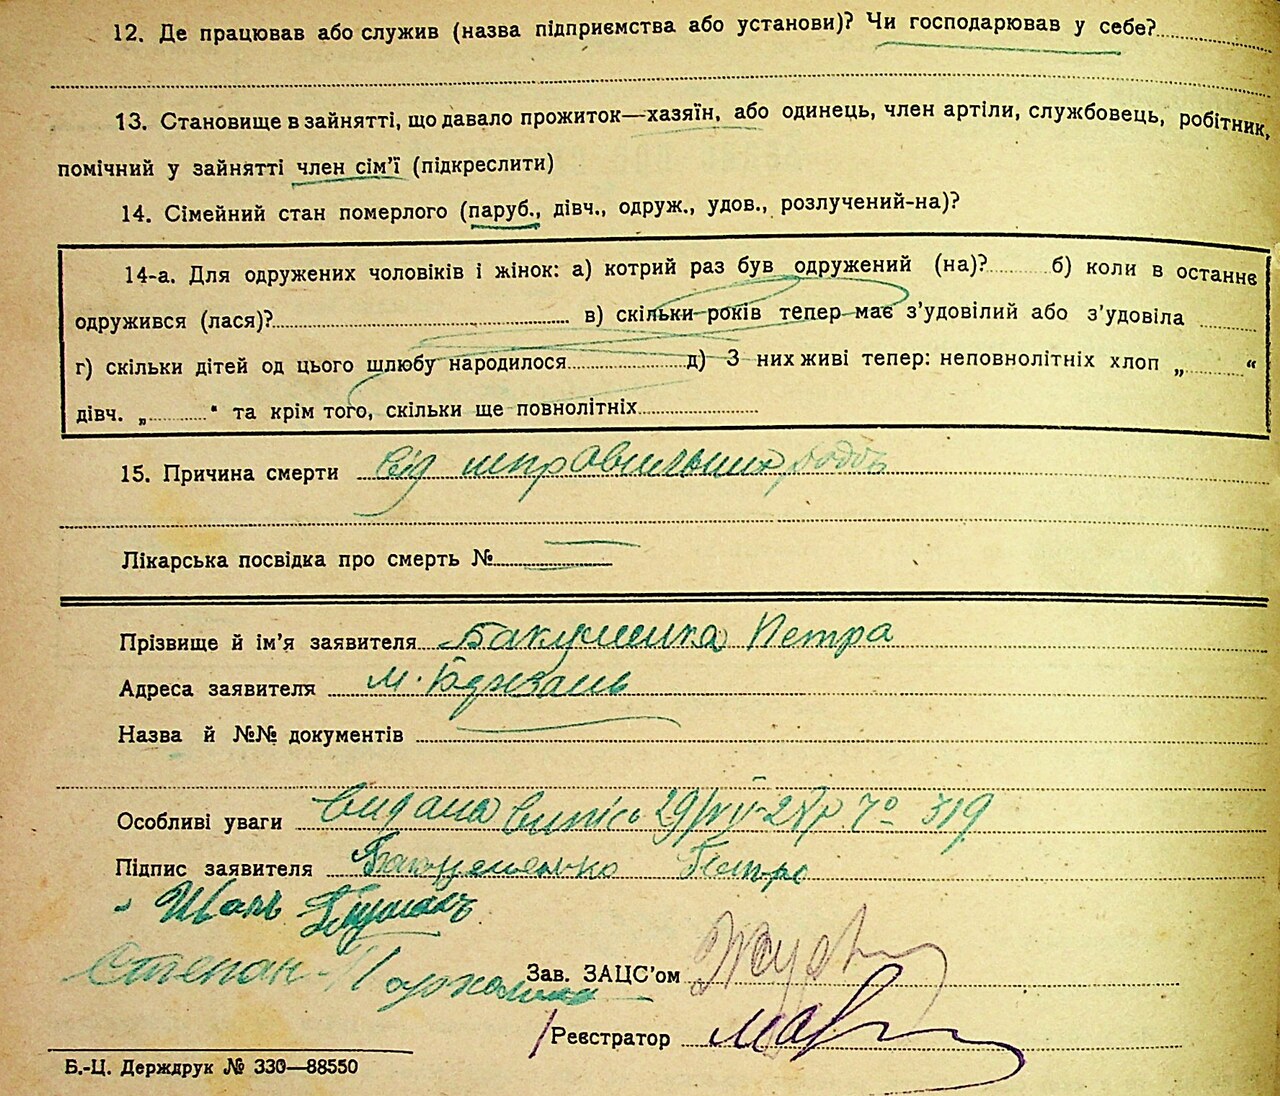 12. Де працював або служив (назва підприємства або установи)? Чи господарював у себе?
13. Становище в зайнятті, що давало прожиток—хазяїн, або одинець, член артіли, службовець, робітник,
помічний у зайнятті член сім’ї (підкреслити)
14. Сімейний стан померлого (паруб., дівч., одруж., удов., розлучений-на)?
14-а. Для одружених чоловіків і жінок: а) котрий раз був одружений (на)? б) коли в останнє
одружився (лася)? в) скільки років тепер має з’удовілий або з’удовіла
г) скільки дітей од цього шлюбу народилося д) З них живі тепер: неповнолітніх хлоп „ “
дівч. „ “ та крім того, скільки ще повнолітніх
15. Причина смерти від
Лікарська посвідка про смерть №
Прізвище й ім’я заявителя Бакушика Петра
Адреса заявителя м.
Назва й №№ документів
Особливі уваги видана випись 319
Підпис заявителя Петро
Степан
Зав. ЗАЦС’ом
Реєстратор
Б.-Ц. Держдрук № 330—88550